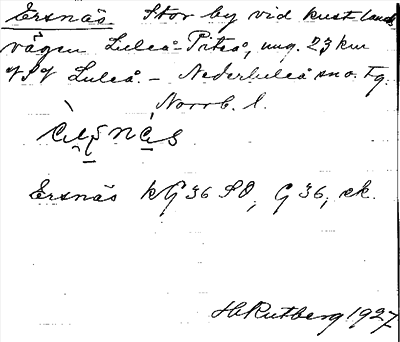 Ersnäs Stor by vid kustlands
vägen Luleå-Piteå, ung. 23 km
Luleå. - Nederluleå sn o. tg.
Norrb. l.
Ersnäs kG 36 SO, G 36, ek.
H Rutberg 1927